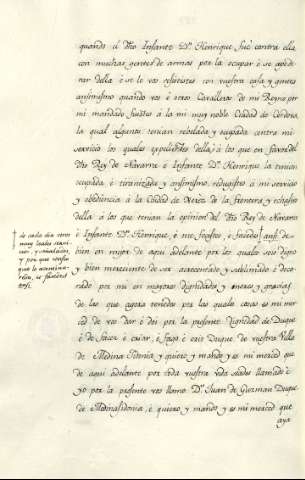 quando el dho Infante Dn. Henrique fue contra ella
con muchas gentes de armas por la ocupar é se apode-
rar della é se le vos resististes con vuestra casa y gentes
ansimismo quando vos é otros Cavalleros de mi Reyno por
mi mandado fuistes a la mi muy noble Ciudad de Córdova,
la qual algunos tenian rebelada y ocupada contra mi
servicio los quales expelistes della, é a los que en favor del
dho Rey de Navarra é Infante Dn. Henrique la tenian
ocupada é tiranizada y ansimismo, redugistes a mi servicio
y obediencia a la Ciudad de Xerez de la frontera y echastes
della a los que tenian la opinion del dho Rey de Navarra
é Infante Dn. Henrique, é me fecistes, é facedes ans de
bien en mejor de aqui adelante por lo qual sois digno
y bien mereciente de ser acrecentado y sublimado é deco-
rado por mi en mayores dignidades y onores y gracias
de las que agora tenedes por las quales cosas es mi mer-
ced de vos dar é doi por la presente dignidad de Duque
é de facer é criar, é fago é crio Duque de vuestra Villa
de Medina Sidonia y quiero y mando y es mi merced que
de aqui adelante por toda vuestra vida seades llamado é
yo por la presente vos llamo Dn. Juan de Guzman Duque
de Medinasidonia é quiero y mando y es mi merced que
aya
de cada dia como
muy leales servi-
cios, y
y por que
que lo